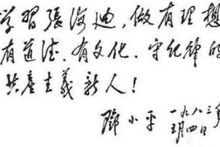 学习張海迪，做有理想
有道德、有文化、守纪律的
共產主義新人！
邓小平
一九八三年
五月四日